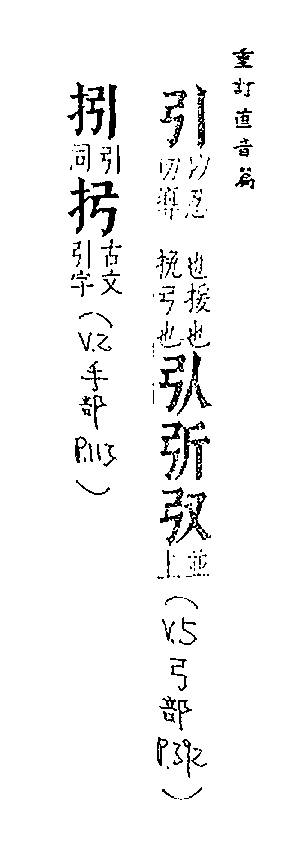 重訂直音篇
引以忍切導也援也挽弓也𢎢㧈𢎧並上(V.5弓部P.392)
㧈引同𢪉古文引字(V.2手部P.113)